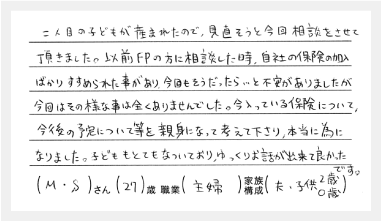 二人目の子どもが産まれたので、見直そうと今回相談をさせて
頂きました。以前FPの方に相談した時、自社の保険の加入
ばかりすすめられた事があり、今回もそうだったら…と不安がありましたが
今回はその様な事は全くありませんでした。今入っている保険について、
今後の予定について等を親身になって考えて下さり、本当に為に
なりました。子どももとてもなついており、ゆっくりお話が出来て良かった
です。
(M・S)さん (27)歳 職業(主婦) 家族構成(夫・子供2歳 0歳)